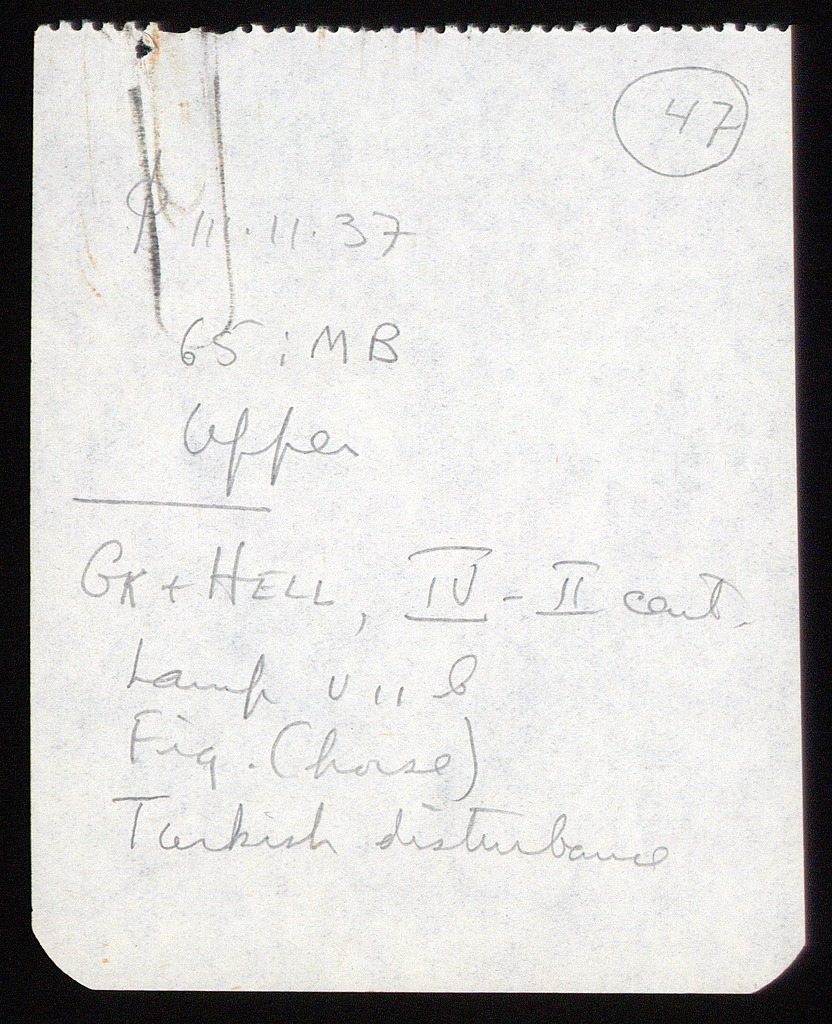 47
φ 111.11.37
65 : MB
Upper
GK + HELL, IV - II cent.
Lamp VII b
Fig. (horse)
Turkish disturbance